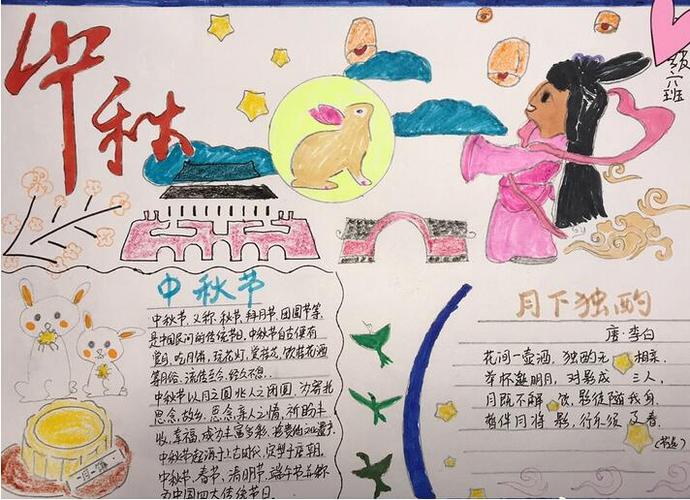 中秋
级六班
中秋节
中秋节,又称秋节、拜月节、团圆节等,
是中国民间的传统节日。中秋节自古便有
赏月、吃月饼、玩花灯、赏桂花、饮桂花酒
等习俗,流传至今,经久不息。
中秋节以月之圆兆人之团圆,为寄托
思念故乡,思念亲人之情,祈盼丰
收、幸福,成为丰富多彩、珍贵的文化遗产
中秋节起源于上古时代,定型于唐朝
中秋节、春节、清明节、端午节并称
为中国四大传统节日。
月下独酌
唐·李白
花间一壶酒,独酌无相亲.
举杯邀明月,对影成三人.
月既不解饮,影徒随我身.
暂伴月将影,行乐须及春.
(节选)